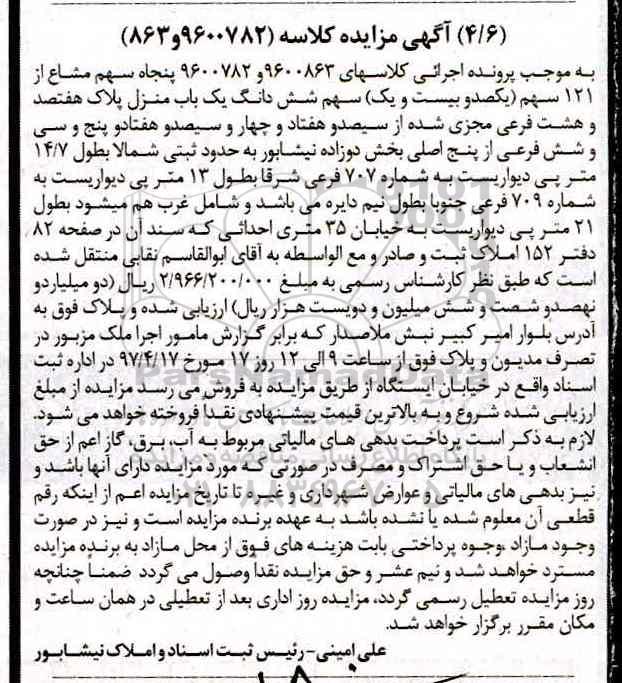 (۴/۶) آگهی مزایده کلاسه (۹۶۰۰۷۸۲و۸۶۳)
به موجب پرونده اجرائی کلاسهای ۹۶۰۰۸۶۳و ۹۶۰۰۷۸۲ پنجاه سهم مشاع از
۱۲۱ سهم (یکصدو بیست و یک) سهم شش دانگ یک باب منزل پلاک هفتصد
و هشت فرعی مجزی شده از سیصدو هفتاد و چهار و سیصدو هفتادو پنج و سی
و شش فرعی از پنج اصلی بخش دوزاده نیشابور به حدود ثبتی شمالا بطول ۱۴/۷
متر پی دیواریست به شماره ۷۰۷ فرعی شرقا بطول ۱۳ متر پی دیواریست به
شماره ۷۰۹ فرعی جنوبا بطول نیم دایره می باشد و شامل غرب هم میشود بطول
۲۱ متر پی دیواریست به خیابان ۳۵ متری احداثی که سند آن در صفحه ۸۲
دفتر ۱۵۲ املاک ثبت و صادر و مع الواسطه به آقای ابوالقاسم نقابی منتقل شده
است که طبق نظر کارشناس رسمی به مبلغ ۲/۹۶۶/۲۰۰/۰۰۰ ریال (دو میلیاردو
نهصدو شصت و شش میلیون و دویست هزار ریال) ارزیابی شده و پلاک فوق به
آدرس بلوار امیر کبیر نبش ملاصدار که برابر گزارش مامور اجرا ملک مزبور در
تصرف مدیون و پلاک فوق از ساعت ۹ الی ۱۲ روز ۱۷ مورخ ۹۷/۴/۱۷ در اداره ثبت
اسناد واقع در خیابان ایستگاه از طریق مزایده به فروش می رسد مزایده از مبلغ
ارزیابی شده شروع و به بالاترین قیمت پیشنهادی نقداً فروخته خواهد می شود.
لازم به ذکر است پرداخت بدهی های مالیاتی مربوط به آب، برق، گاز اعم از حق
انشعاب و یا حق اشتراک و مصرف در صورتی که مورد مزایده دارای آنها باشد و
نیز بدهی های مالیاتی و عوارض شهرداری و غیره تا تاریخ مزایده اعم از اینکه رقم
قطعی آن معلوم شده یا نشده باشد به عهده برنده مزایده است و نیز در صورت
وجود مازاد ،وجوه پرداختی بابت هزینه های فوق از محل مازاد به برنده مزایده
مسترد خواهد شد و نیم عشر و حق مزایده نقدا وصول می گردد ضمنا چنانچه
روز مزایده تعطیل رسمی گردد، مزایده روز اداری بعد از تعطیلی در همان ساعت و
مکان مقرر برگزار خواهد شد.
علی امینی-رئیس ثبت اسناد و املاک نیشابور